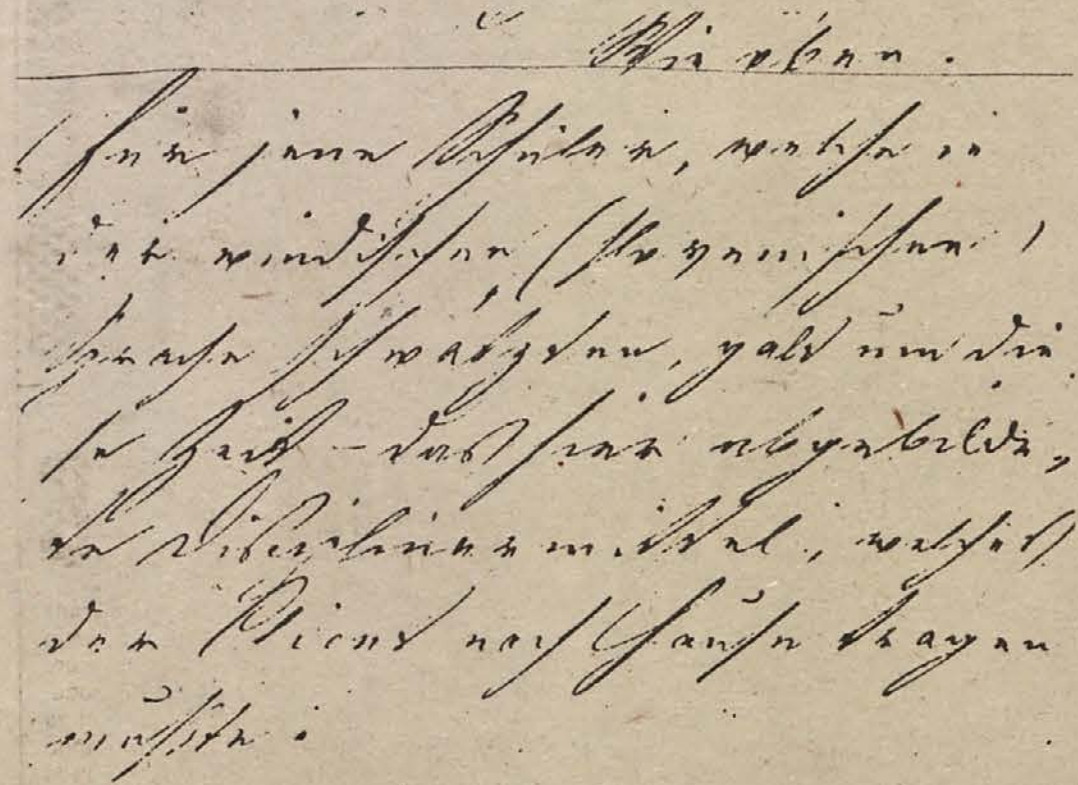 Wie oben.
Für jene Schüler, welche in
der windischen (slovenischen)
Sprache schwätzten, galt um die
se Zeit – das hier abgebilde„
te Disciplinarmittel, welches
der nach Hause tragen
mußte.